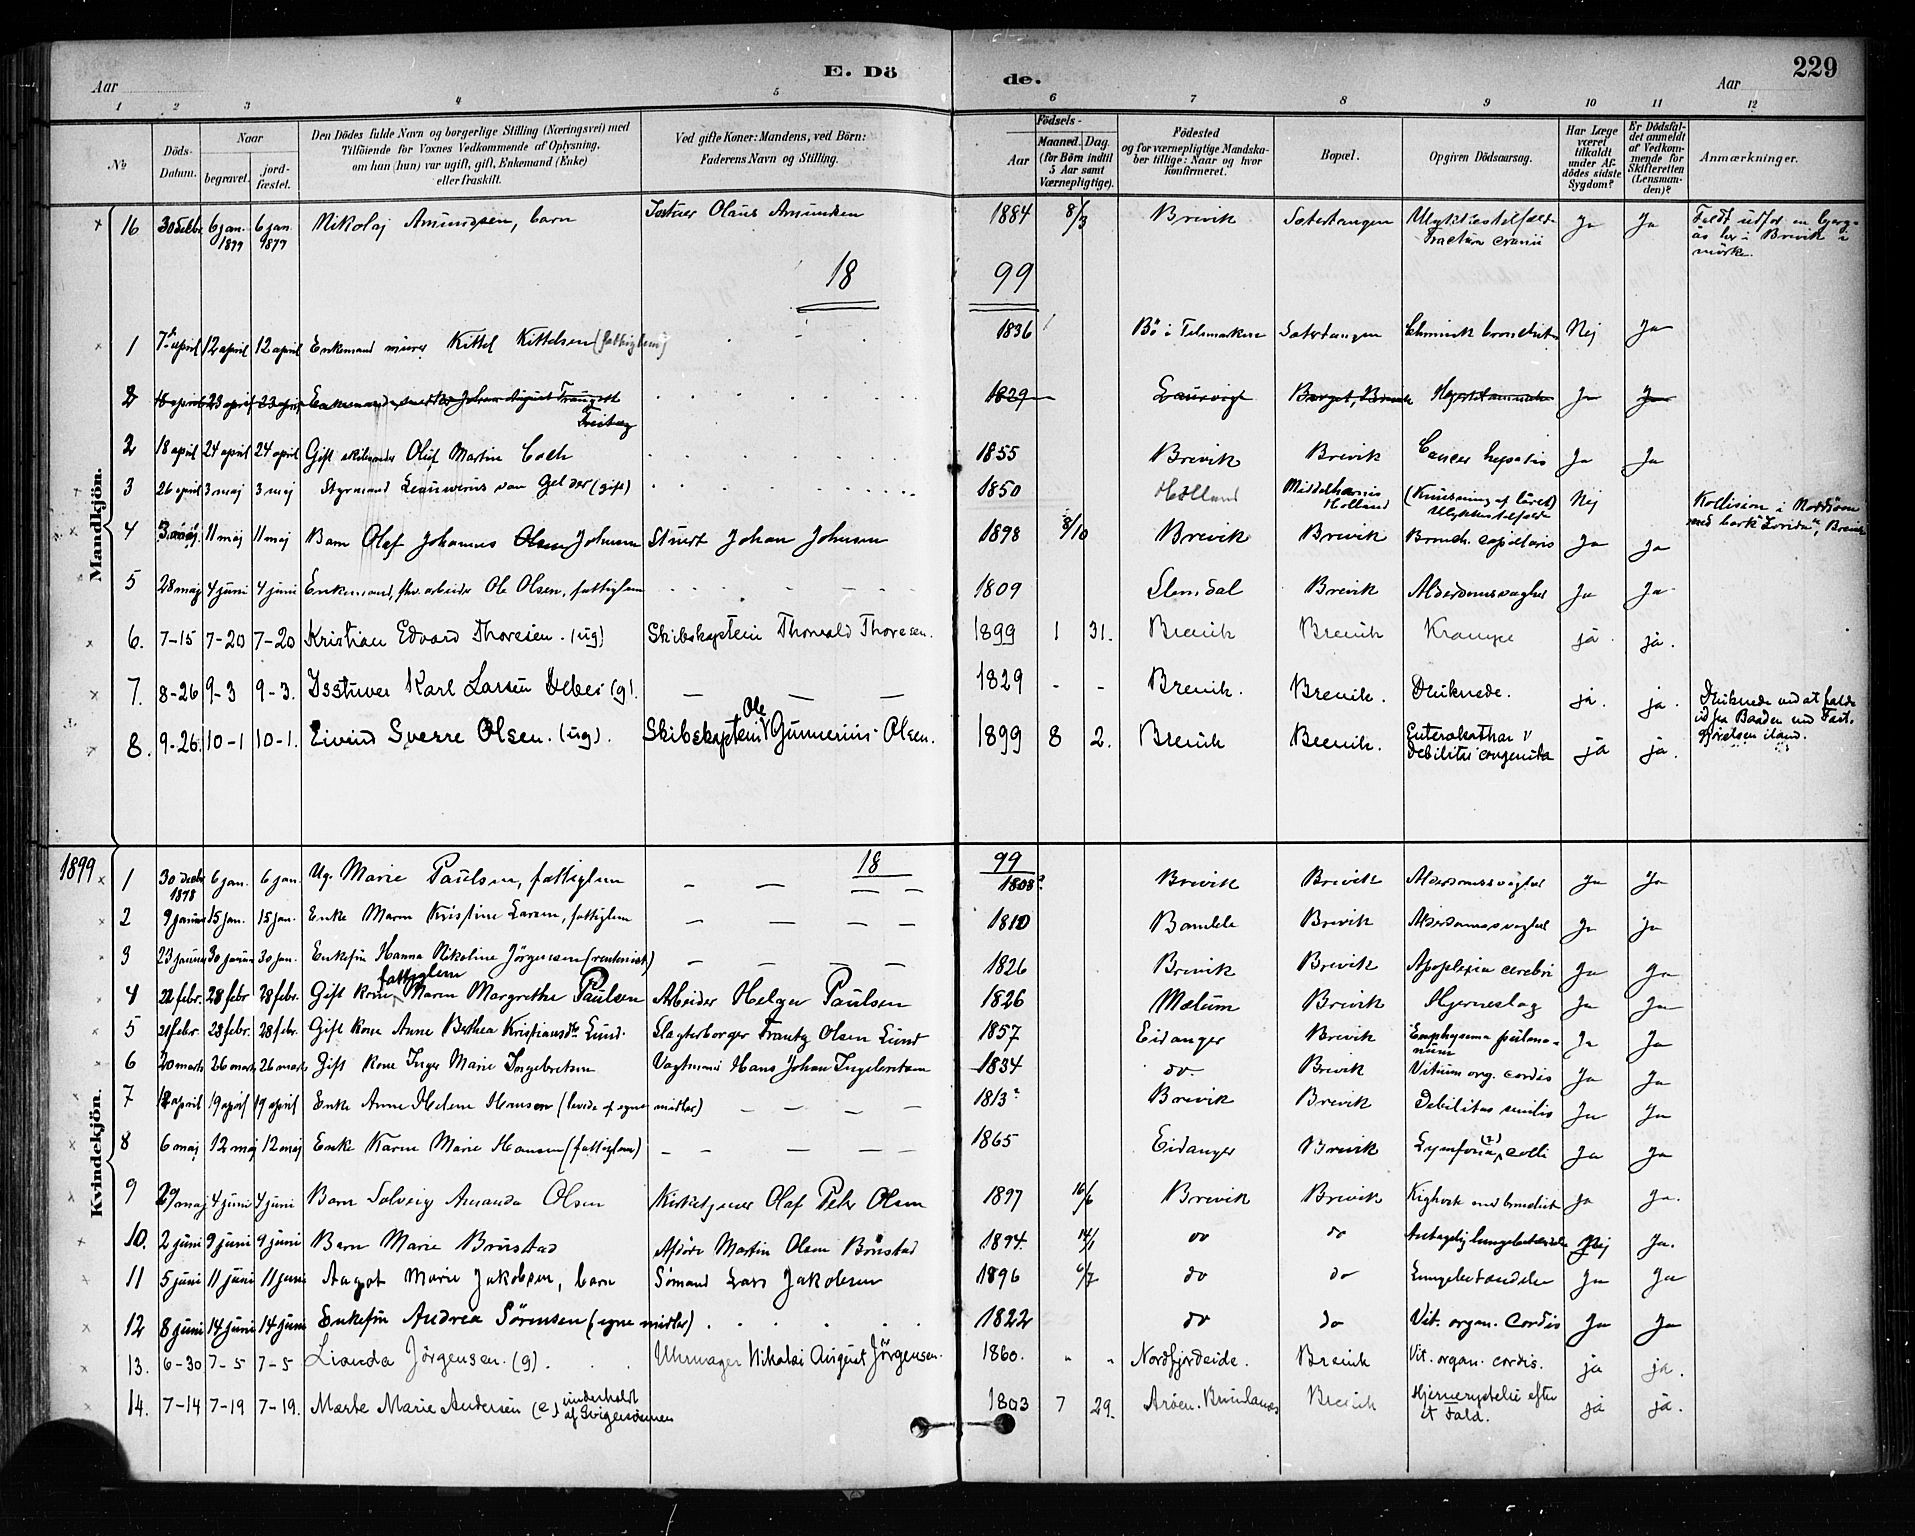 Aar
E. Dö
de.
Aar
229
1 2 3 4 5 6 7 8 9 10 11 12
No
Döds-Datum.
Naar
begravet.
jord-fæstet.
Den Dödes fulde Navn og borgerlige Stilling (Næringsvei) med
Tilföiende for Voxnes Vedkommende af Oplysning,
om han (hun) var ugift, gift, Enkemand (Enke)
eller fraskilt.
Ved gifte Koner: Mandens, ved Börn:
Faderens Navn og Stilling.
Födsels-
Aar
Maaned. Dag.
(for Börn indtil
5 Aar samt
Værnepligtige).
Födested
og for værnepligtige Mandska-
ber tillige: Naar og hvor
konfirmeret.
Bopæl.
Opgiven Dödsaarsag.
Har Læge
været
tilkaldt
under Af-
dödes sidste
Sygdom?
Er Dödsfal-
det anmeldt
af Vedkom-
mende for
Skifteretten
(Lensman-
den)?
Anmærkninger.
Mandkjön.
16 30 decbr 6 jan. 1899 6 jan. 1899 Nikolaj Amundsen, barn Olaus Amundsen 1884 8/3 Brevik Sætertangen Ulykkestilfælde Fractura cranii Ja Ja Faldt udfor en bjerg- i Brevik i mörke.
18 99
1 7 april 12 april 12 april Enkemand murer Kittel Kittelsen (fattiglem) 1836 Bö i Telemarken Sætertangen Chronisk bronchit Nej Ja
2 18 april 23 april 23 april Enkemand Johan August Freitag 1829 Laurvig Ja Ja
2 18 april 24 april 24 april Gift Oluf Martin Coch 1855 Brevik Brevik Cancer hepatis Ja Ja
3 26 april 3 maj 3 maj Styrmand van Gelder (gift) 1850 Holland Middelharnis Holland (Knusning af låret) Ulykkestilfælde Nej Kollision i Nordsöen med bark "Zorida", Brevik
4 3 maj 11 maj 11 maj Barn Olaf Johannes Olsen Johnsen Stuert Johan Johnsen 1898 8/10 Brevik Brevik Bronch. capillaris Ja Ja
5 28 maj 4 juni 4 juni Enkemand, fhv. arbeider Ole Olsen, fattiglem 1809 Brevik Alderdomssvaghed Ja Ja
6. 7-15 7-20 7-20 Kristian Edvard Thoresen. (ug) Skibskaptein Thorvald Thoresen. 1899 1 31. Brevik Brevik Krampe ja ja.
7. 8-26 9-3 9-3. Karl Larsen (g). 1829 - - Brevik. Brevik. Druknede. ja. ja. Druknede ved at falde ud fra Baaden
8. 9-26. 10-1 10-1. Eivind Sverre Olsen. (ug). Skibskaptein Ole Gunnerius Olsen. 1899 8 2. Brevik Brevik. Enterokathar Debilitas congenita ja ja.
1899
Kvindekjön.
18 99
1 30 decbr 1898 6 jan. 6 jan. Ug. Marie Paulsen, fattiglem 1808? Brevik Brevik Alderdomssvaghed Ja Ja
2 9 januar 15 jan. 15 jan. Enke Maren Kristine Larsen, fattiglem 1810 Bamble Brevik Alderdomssvaghed Ja Ja
3 23 januar 30 januar 30 jan. Enkefru Hanna Nikoline Jörgensen (rentenist) 1826 Brevik Brevik Apoplexia cerebri Ja Ja
4 22 febr. 28 febr 28 febr. Gift kone fattiglem Maren Margrethe Paulsen Arbeider Helger Paulsen 1826 Mælum Brevik Hjerneslag Ja Ja
5 21 febr. 28 febr. 28 febr. Gift kone Anne Berthea Kristiansdtr Lund. Slagterborger Frantz Olsen Lund 1857 Eidanger Brevik Emphysema pulmonum Ja Ja
6 20 marts 26 marts 26 marts Gift kone Inger Marie Ingebretsen Vagtmand Hans Johan Ingebretsen 1834 do. Brevik Vitium org. cordis Ja Ja
7 12 april 19 april 19 april Enke Anne Helene Hansen (levede af egne midler) 1813? Brevik Brevik Debilitas senilis Ja Ja
8 6 maj 12 maj 12 maj Enke Karen Marie Hansen (fattiglem) 1865 Eidanger Brevik Lymfoma (?) colli Ja Ja
9 29 maj 4 juni 4 juni Barn Solveig Amanda Olsen Kirketjener Olaf Peter Olsen 1897 16/6 Brevik Brevik Kighoste med bronchit Ja Ja.
10. 2 juni 9 juni 9 juni Barn Marie Brustad Afdöde Martin Olsen Brustad 1894. 14/1 do do Antagelig lungebetændelse Nej Ja.
11 5 juni 11 juni 11 juni Aagot Marie Jakobsen, barn Sömand Lars Jakobsen 1896 6/7 do do Lungebetændelse Ja Ja
12 8 juni 14 juni 14 juni Enkefru Andrea Sörensen (egne midler) 1822 do do Vit. organ. cordis Ja Ja
13. 6-30 7-5 7-5 Lianda Jörgensen. (g). Uhrmager Nikolai August Jörgensen. 1860. " " Nordfjordeide. Brevik Vit. organ. cordis. ja ja.
14. 7-14 7-19 7-19. Marte Marie Andersen (e) underholdt af Svigersönnen 1803 7 29. Aröen. Brunlanæs Brevik Hjernerystelse efter et Fald. ja ja.